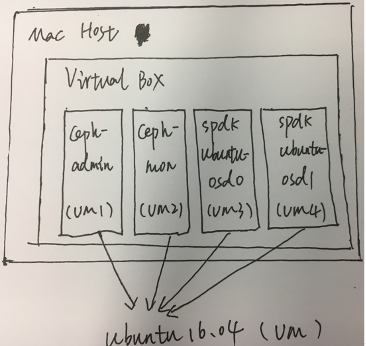 Mac Host
Virtual Box
Ceph-
admin
(VM1)
Ceph-
mon
(VM2)
spdk
ubuntu-
osd0
(VM3)
spdk
ubuntu-
osd1
(VM4)
ubuntu 16.04 (VM)